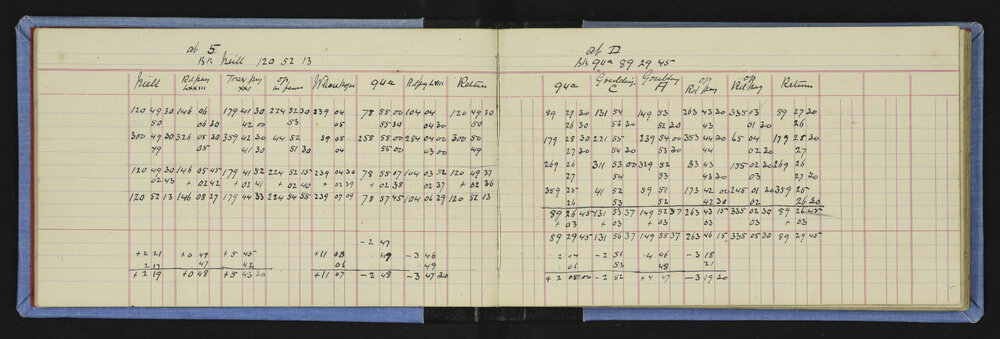 at 5
BA Neill 120 52 13
Niell Rd peg LXXIII Trav peg XXI 9ua Rd peg LXIII Return
120 49 30 146 06 179 41 30 224 52 30 239 04 78 55 00 104 04 120 49 30
50 06 30 42 00 53 05 55 30 04 30 50
300 49 30 326 05 30 359 41 30 44 52 59 04 258 55 00 284 04 00 300 50
49 05 41 30 51 30 04 55 00 03 00 49
120 49 30 146 05 45 179 41 52 224 52 15 239 04 30 78 55 07 104 03 52 120 49 37
+ 02 43 + 02 42 + 02 41 + 02 40 + 02 39 + 02 38 02 37 + 02 36
120 52 13 146 08 27 179 44 33 224 54 55 239 07 09 78 57 45 104 06 29 120 52 13
- 2 47
+ 2 21 + 0 49 + 5 45 + 11 08 49 - 3 46
2 17 47 42 06 49
+ 2 19 + 0 48 + 5 43 30 + 11 07 - 2 48 - 3 47 30
at D
BA 9ua 89 29 45
9ua Goulding C Goulding A Rd peg Rd peg Return
89 27 30 131 54 149 53 263 43 30 335 03 89 27 30
26 30 53 30 52 30 43 01 30 26
179 28 30 221 55 239 54 00 353 44 30 65 04 179 28 30
27 30 54 30 53 30 44 02 30 27
269 26 311 53 00 329 52 83 43 155 02 30 269 26
27 54 53 43 30 03 27 30
359 25 41 52 59 51 173 42 00 245 01 30 359 25
26 53 52 42 30 02 26 30
89 26 45 131 53 37 149 52 37 263 43 15 335 02 30 89 26 45
+ 03 + 03 + 03 03 03 + 03
89 29 45 131 56 37 149 55 37 263 46 15 335 05 30 89 29 45
2 04 - 2 51 4 46 - 3 18
06 53 48 21
+ 2 05 00 - 2 52 + 4 47 - 3 19 30